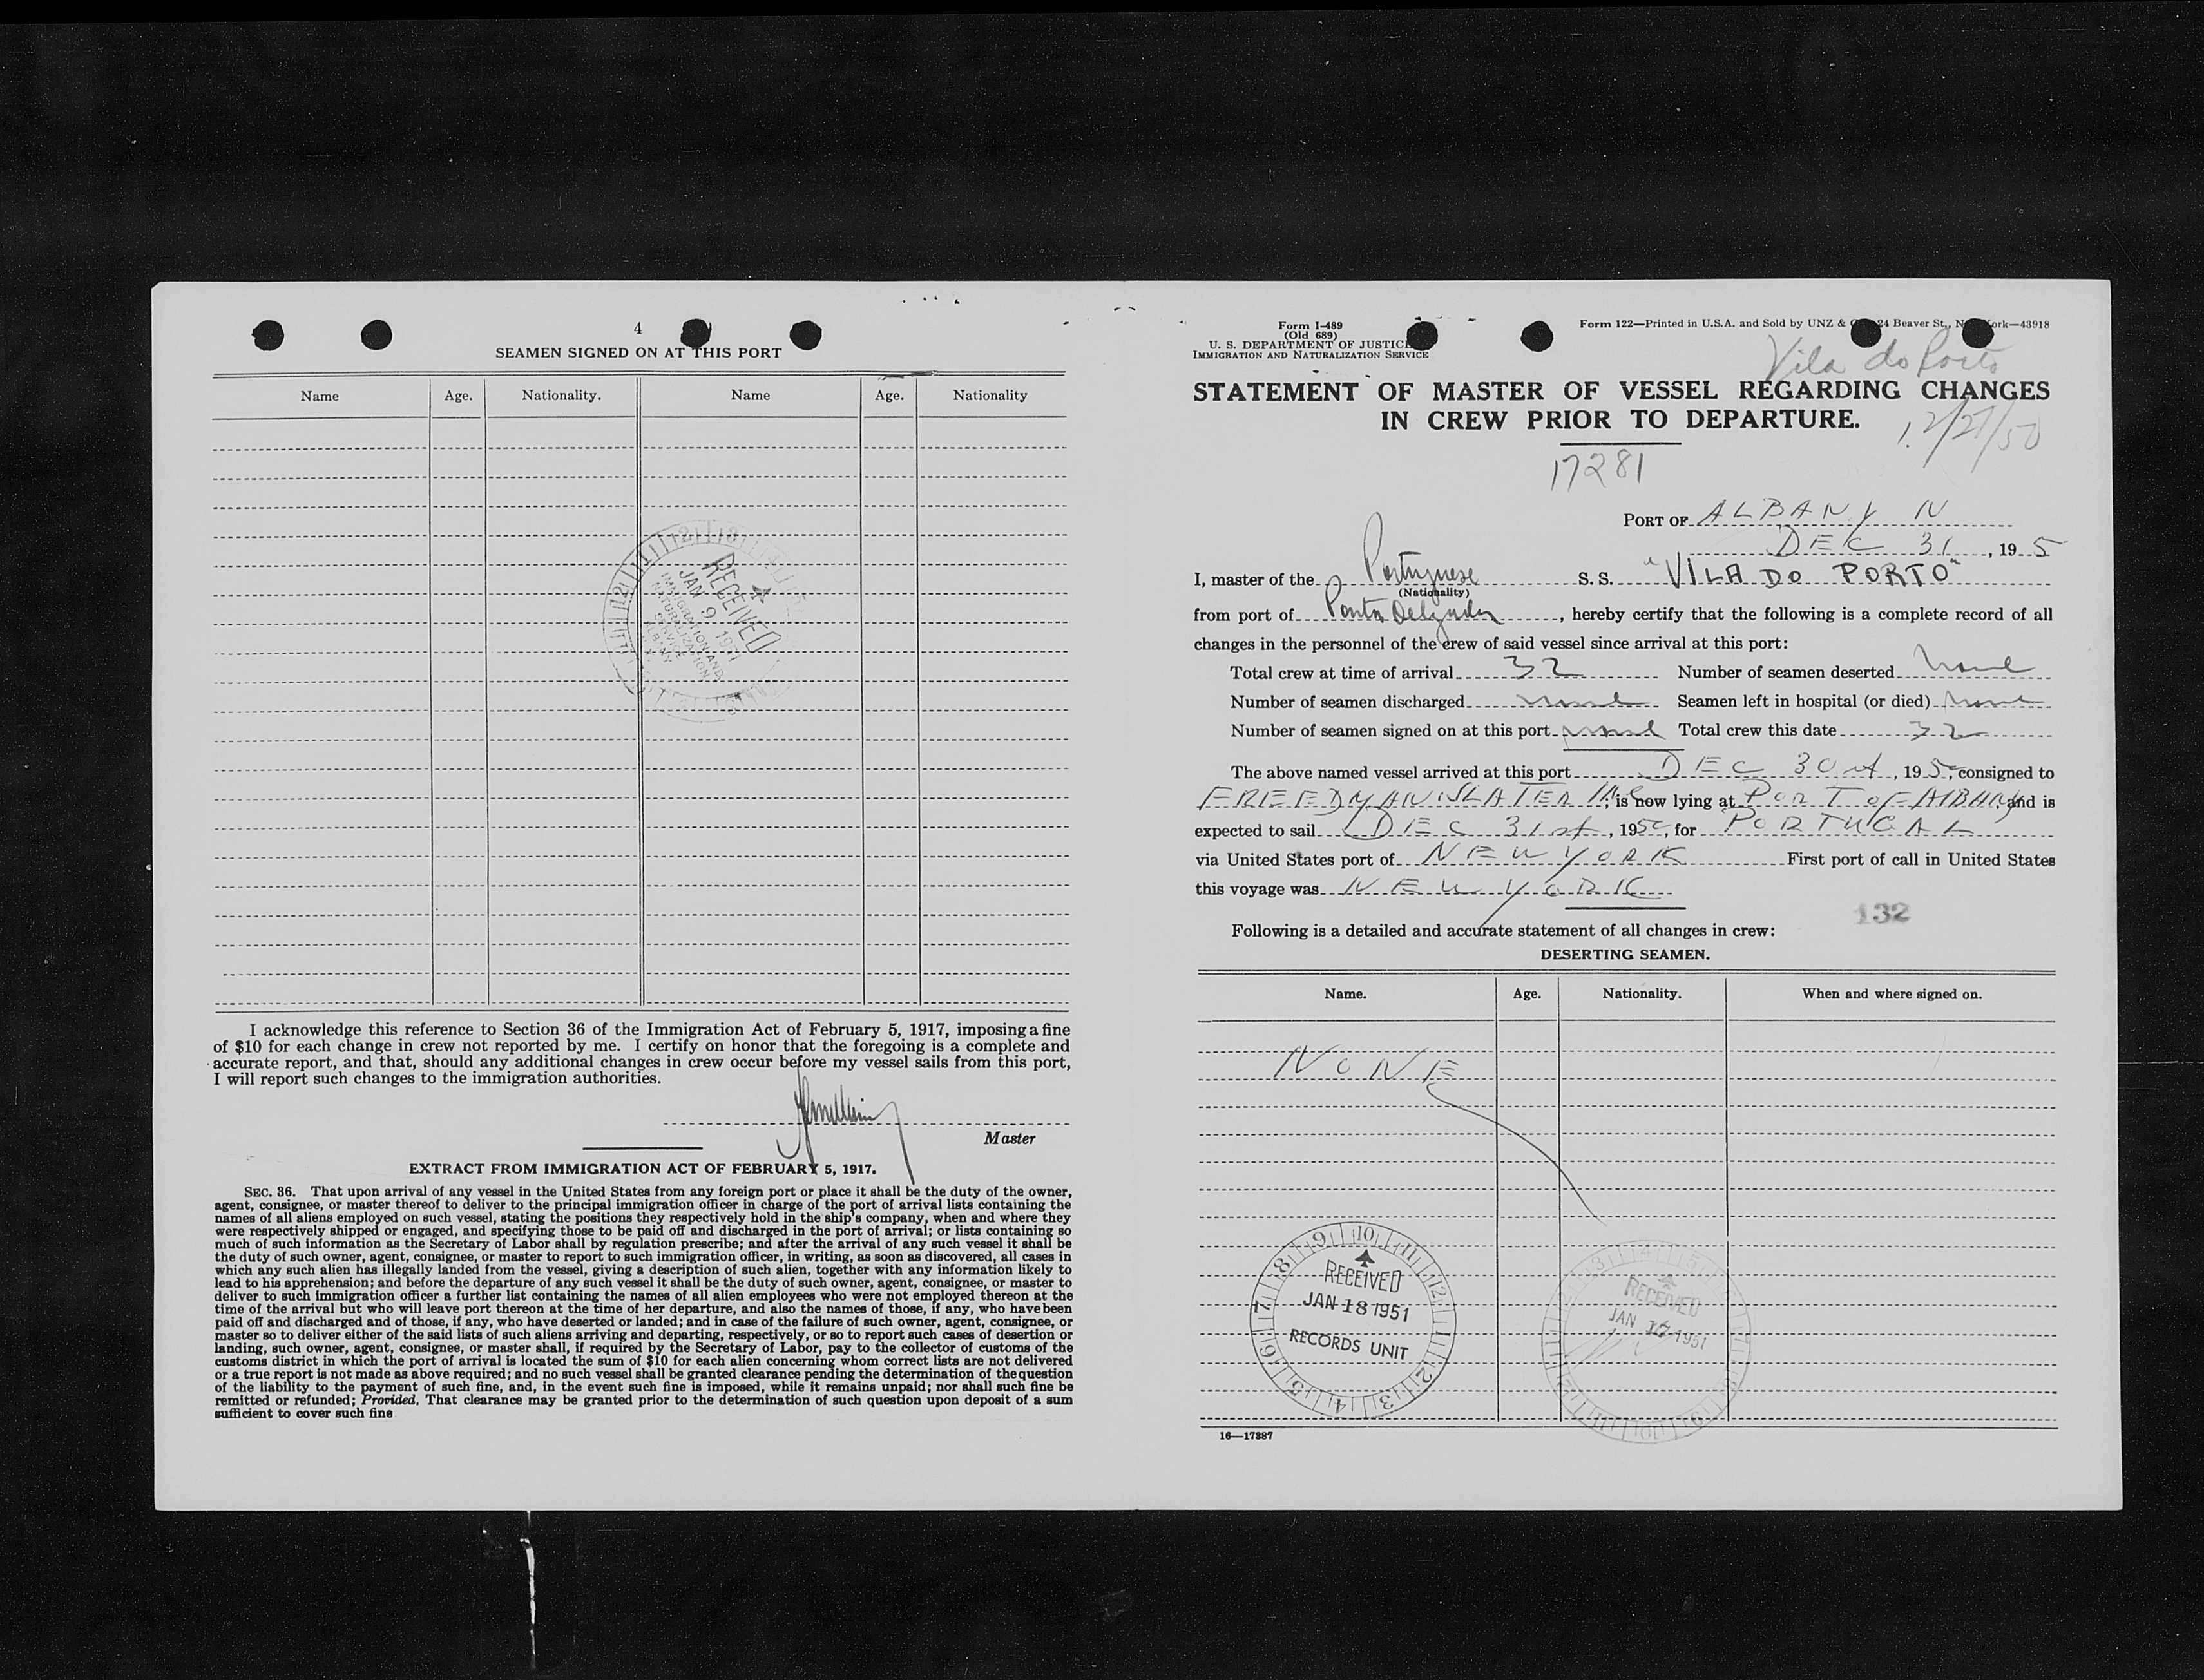 4
SEAMEN SIGNED ON AT THIS PORT
Name Age. Nationality. Name Age. Nationality
RECEIVED
JAN 9 1951
IMMIGRATION AND
NATURALIZATION
SERVICE
ALBANY
I acknowledge this reference to Section 36 of the Immigration Act of February 5, 1917, imposing a fine
of $10 for each change in crew not reported by me. I certify on honor that the foregoing is a complete and
accurate report, and that, should any additional changes in crew occur before my vessel sails from this port,
I will report such changes to the immigration authorities.
Master
EXTRACT FROM IMMIGRATION ACT OF FEBRUARY 5, 1917.
SEC. 36. That upon arrival of any vessel in the United States from any foreign port or place it shall be the duty of the owner,
agent, consignee, or master thereof to deliver to the principal immigration officer in charge of the port of arrival lists containing the
names of all aliens employed on such vessel, stating the positions they respectively hold in the ship's company, when and where they
were respectively shipped or engaged, and specifying those to be paid off and discharged in the port of arrival; or lists containing so
much of such information as the Secretary of Labor shall by regulation prescribe; and after the arrival of any such vessel it shall be
the duty of such owner, agent, consignee, or master to report to such immigration officer, in writing, as soon as discovered, all cases in
which any such alien has illegally landed from the vessel, giving a description of such alien, together with any information likely to
lead to his apprehension; and before the departure of any such vessel it shall be the duty of such owner, agent, consignee, or master to
deliver to such immigration officer a further list containing the names of all alien employees who were not employed thereon at the
time of the arrival but who will leave port thereon at the time of her departure, and also the names of those, if any, who have been
paid off and discharged and of those, if any, who have deserted or landed; and in case of the failure of such owner, agent, consignee, or
master so to deliver either of the said lists of such aliens arriving and departing, respectively, or so to report such cases of desertion or
landing, such owner, agent, consignee, or master shall, if required by the Secretary of Labor, pay to the collector of customs of the
customs district in which the port of arrival is located the sum of $10 for each alien concerning whom correct lists are not delivered
or a true report is not made as above required; and no such vessel shall be granted clearance pending the determination of the question
of the liability to the payment of such fine, and, in the event such fine is imposed, while it remains unpaid; nor shall such fine be
remitted or refunded; Provided, That clearance may be granted prior to the determination of such question upon deposit of a sum
sufficient to cover such fine
Form I-489
(Old 689)
U. S. DEPARTMENT OF JUSTICE
IMMIGRATION AND NATURALIZATION SERVICE
Form 122—Printed in U.S.A. and Sold by UNZ & 24 Beaver St., New York—43918
Vila do Porto
STATEMENT OF MASTER OF VESSEL REGARDING CHANGES
IN CREW PRIOR TO DEPARTURE.
12/27/50
17281
PORT OF ALBANY N
DEC 31, 195
I, master of the Portuguese S. S. "VILA DO PORTO"
(Nationality)
from port of Ponta Delgada, hereby certify that the following is a complete record of all
changes in the personnel of the crew of said vessel since arrival at this port:
Total crew at time of arrival 32 Number of seamen deserted none
Number of seamen discharged none Seamen left in hospital (or died) none
Number of seamen signed on at this port none Total crew this date 32
The above named vessel arrived at this port DEC 30, 1950, consigned to
FREEDMAN SLATER INC, is now lying at PORT OF ALBANY, and is
expected to sail DEC 31st, 1950, for PORTUGAL
via United States port of NEW YORK First port of call in United States
this voyage was NEW YORK
132
Following is a detailed and accurate statement of all changes in crew:
DESERTING SEAMEN.
Name. Age. Nationality. When and where signed on.
NONE
RECEIVED
JAN 18 1951
RECORDS UNIT
RECEIVED
JAN 17 1951
16—17387